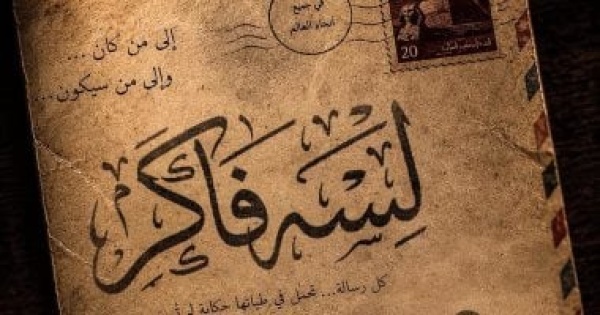 في جميع
أنحاء العالم
20
إلى من كان ...
وإلى من سيكون...
لِسه فَاكِرَ
كل رسالة... تحمل في طياتها حكاية لم